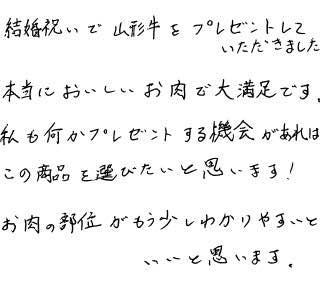 結婚祝いで山形牛をプレゼントして
いただきました
本当においしいお肉で大満足です。
私も何かプレゼントする機会があれば
この商品を選びたいと思います!
お肉の部位がもう少しわかりやすいと
いいと思います。